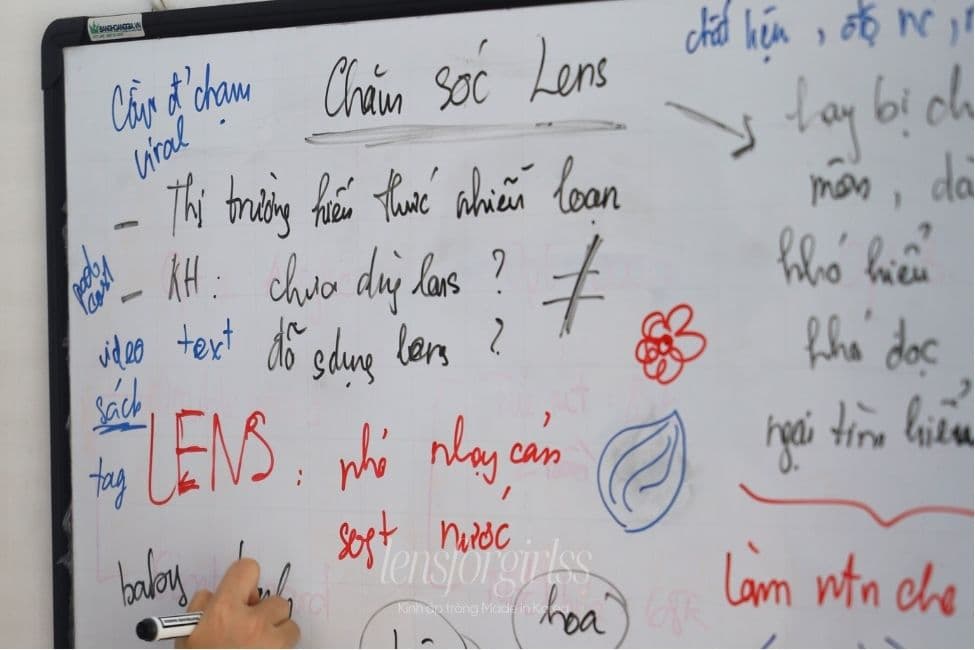 Chăm sóc Lens
Cần để chạm
viral
- Thị trường kiến thức nhiễu loạn
podcast
- KH: chưa dùng lens ? ≠
đã sdụng lens ?
video text
sách
tag
LENS: nhỏ nhạy cảm
sợt nước
baby
hoá
chất liệu, độ nc,
hay bị ch
môn, dà
khó hiểu
khó đọc
ngại tìm hiểu
làm ntn cho
lensforgirlss
Kính áp tròng Made in Korea
BANGHOANGGIA.VN